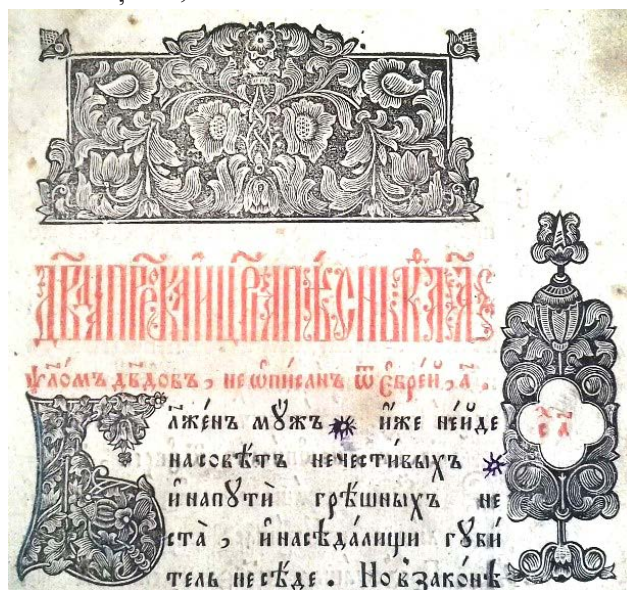 ДВ҃ДА ПРР҇ОКА И ЦРѦ҃ ПѢСНЬ К҃А҃Ѳ
ѱало́мъ дв҃довъ, не ѡпи́санъ ѿ є҆вре́й, а҃.
Бл҃же́нъ мꙋ́жъ * и҆́же не́и҆де
на совѣ́тъ нечести́выхъ *
и҆ на пꙋти̑ грѣ́шныхъ не
ста̀, и҆ на сѣда́лищи гꙋби́
тель не сѣ́де. Но в̾ зако́нѣ
х҃с а҃